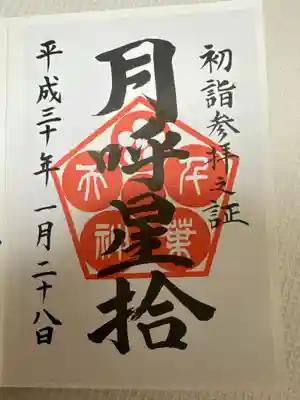 初詣参拝之証
月呼星拾
平成三十年 一月 二十八日
千
葉